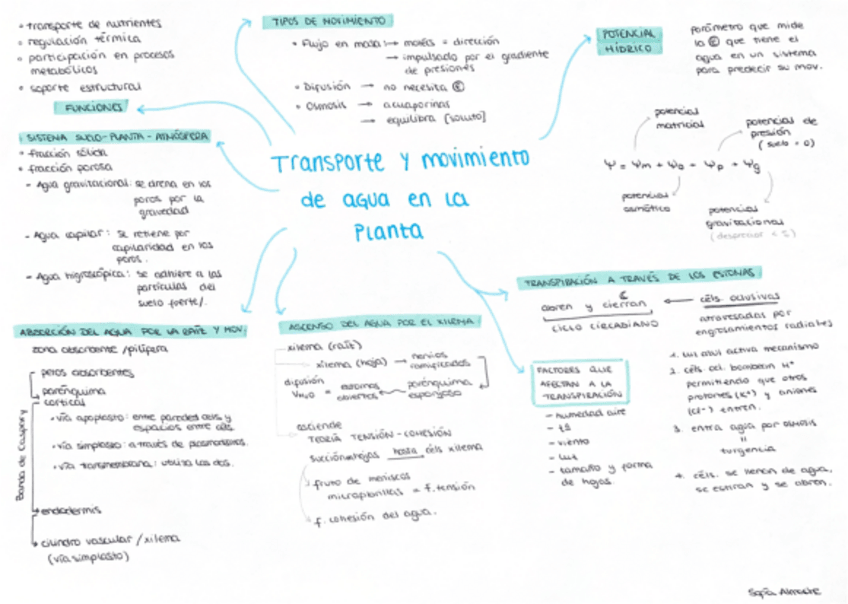 Transporte y movimiento
de agua en la
Planta
• transporte de nutrientes
• regulación térmica
• participación en procesos
metabólicos
• soporte estructural
FUNCIONES
TIPOS DE MOVIMIENTO
• Flujo en masa → moléls = dirección
→ impulsado por el gradiente
de presiones
• Difusión → no necesita Ⓔ
• Osmosis → acuaporinas
→ equilibra [soluto]
POTENCIAL
HÍDRICO
parámetro que mide
la Ⓔ que tiene el
agua en un sistema
para predecir su mov.
potencial
matricial
potencial de
presión
(suelo = 0)
Ψ = Ψm + Ψo + Ψp + Ψg
potencial
osmótico
potencial
gravitacional
SISTEMA SUELO-PLANTA-ATMÓSFERA
• fracción sólida
• fracción porosa
- Agua gravitacional: se drena en los
poros por la
gravedad
- Agua capilar: se retiene por
capilaridad en los
poros.
- Agua higroscópica: se adhiere a las
partículas del
suelo fuerte/.
ABSORCIÓN DEL AGUA POR LA RAÍZ Y MOV.
zona absorbente /pilífera
pelos absorbentes
parénquima
cortical
• vía apoplasto: entre paredes céls y
espacios entre céls.
• vía simplasto: a través de plasmodesmos.
• vía transmembrana: utiliza las dos.
Banda de Caspary
endodermis
cilindro vascular /xilema
(vía simplasto)
ASCENSO DEL AGUA POR EL XILEMA
xilema (raíz)
xilema (hoja) → nervios
ramificados
difusión
VH₂O = estomas
abiertos ← parénquima
esponjoso
asciende
TEORÍA TENSIÓN-COHESIÓN
succión hojas hasta céls xilema
fruto de meniscos
microfibrillas = f. tensión
f. cohesión del agua.
TRANSPIRACIÓN A TRAVÉS DE LOS ESTOMAS
abren y cierran ← céls. oclusivas
CICLO CIRCADIANO
atravesadas por
engrosamientos radiales
1. Luz azul activa mecanismo
2. céls. ocl. bombean H⁺
permitiendo que otros
protones (K⁺) y aniones
(Cl⁻) entren.
3. entra agua por osmosis
=
turgencia
4. céls. se llenan de agua,
se estiran y se abren.
FACTORES QUE
AFECTAN A LA
TRANSPIRACIÓN
- humedad aire
- tª
- viento
- luz
- tamaño y forma
de hojas.